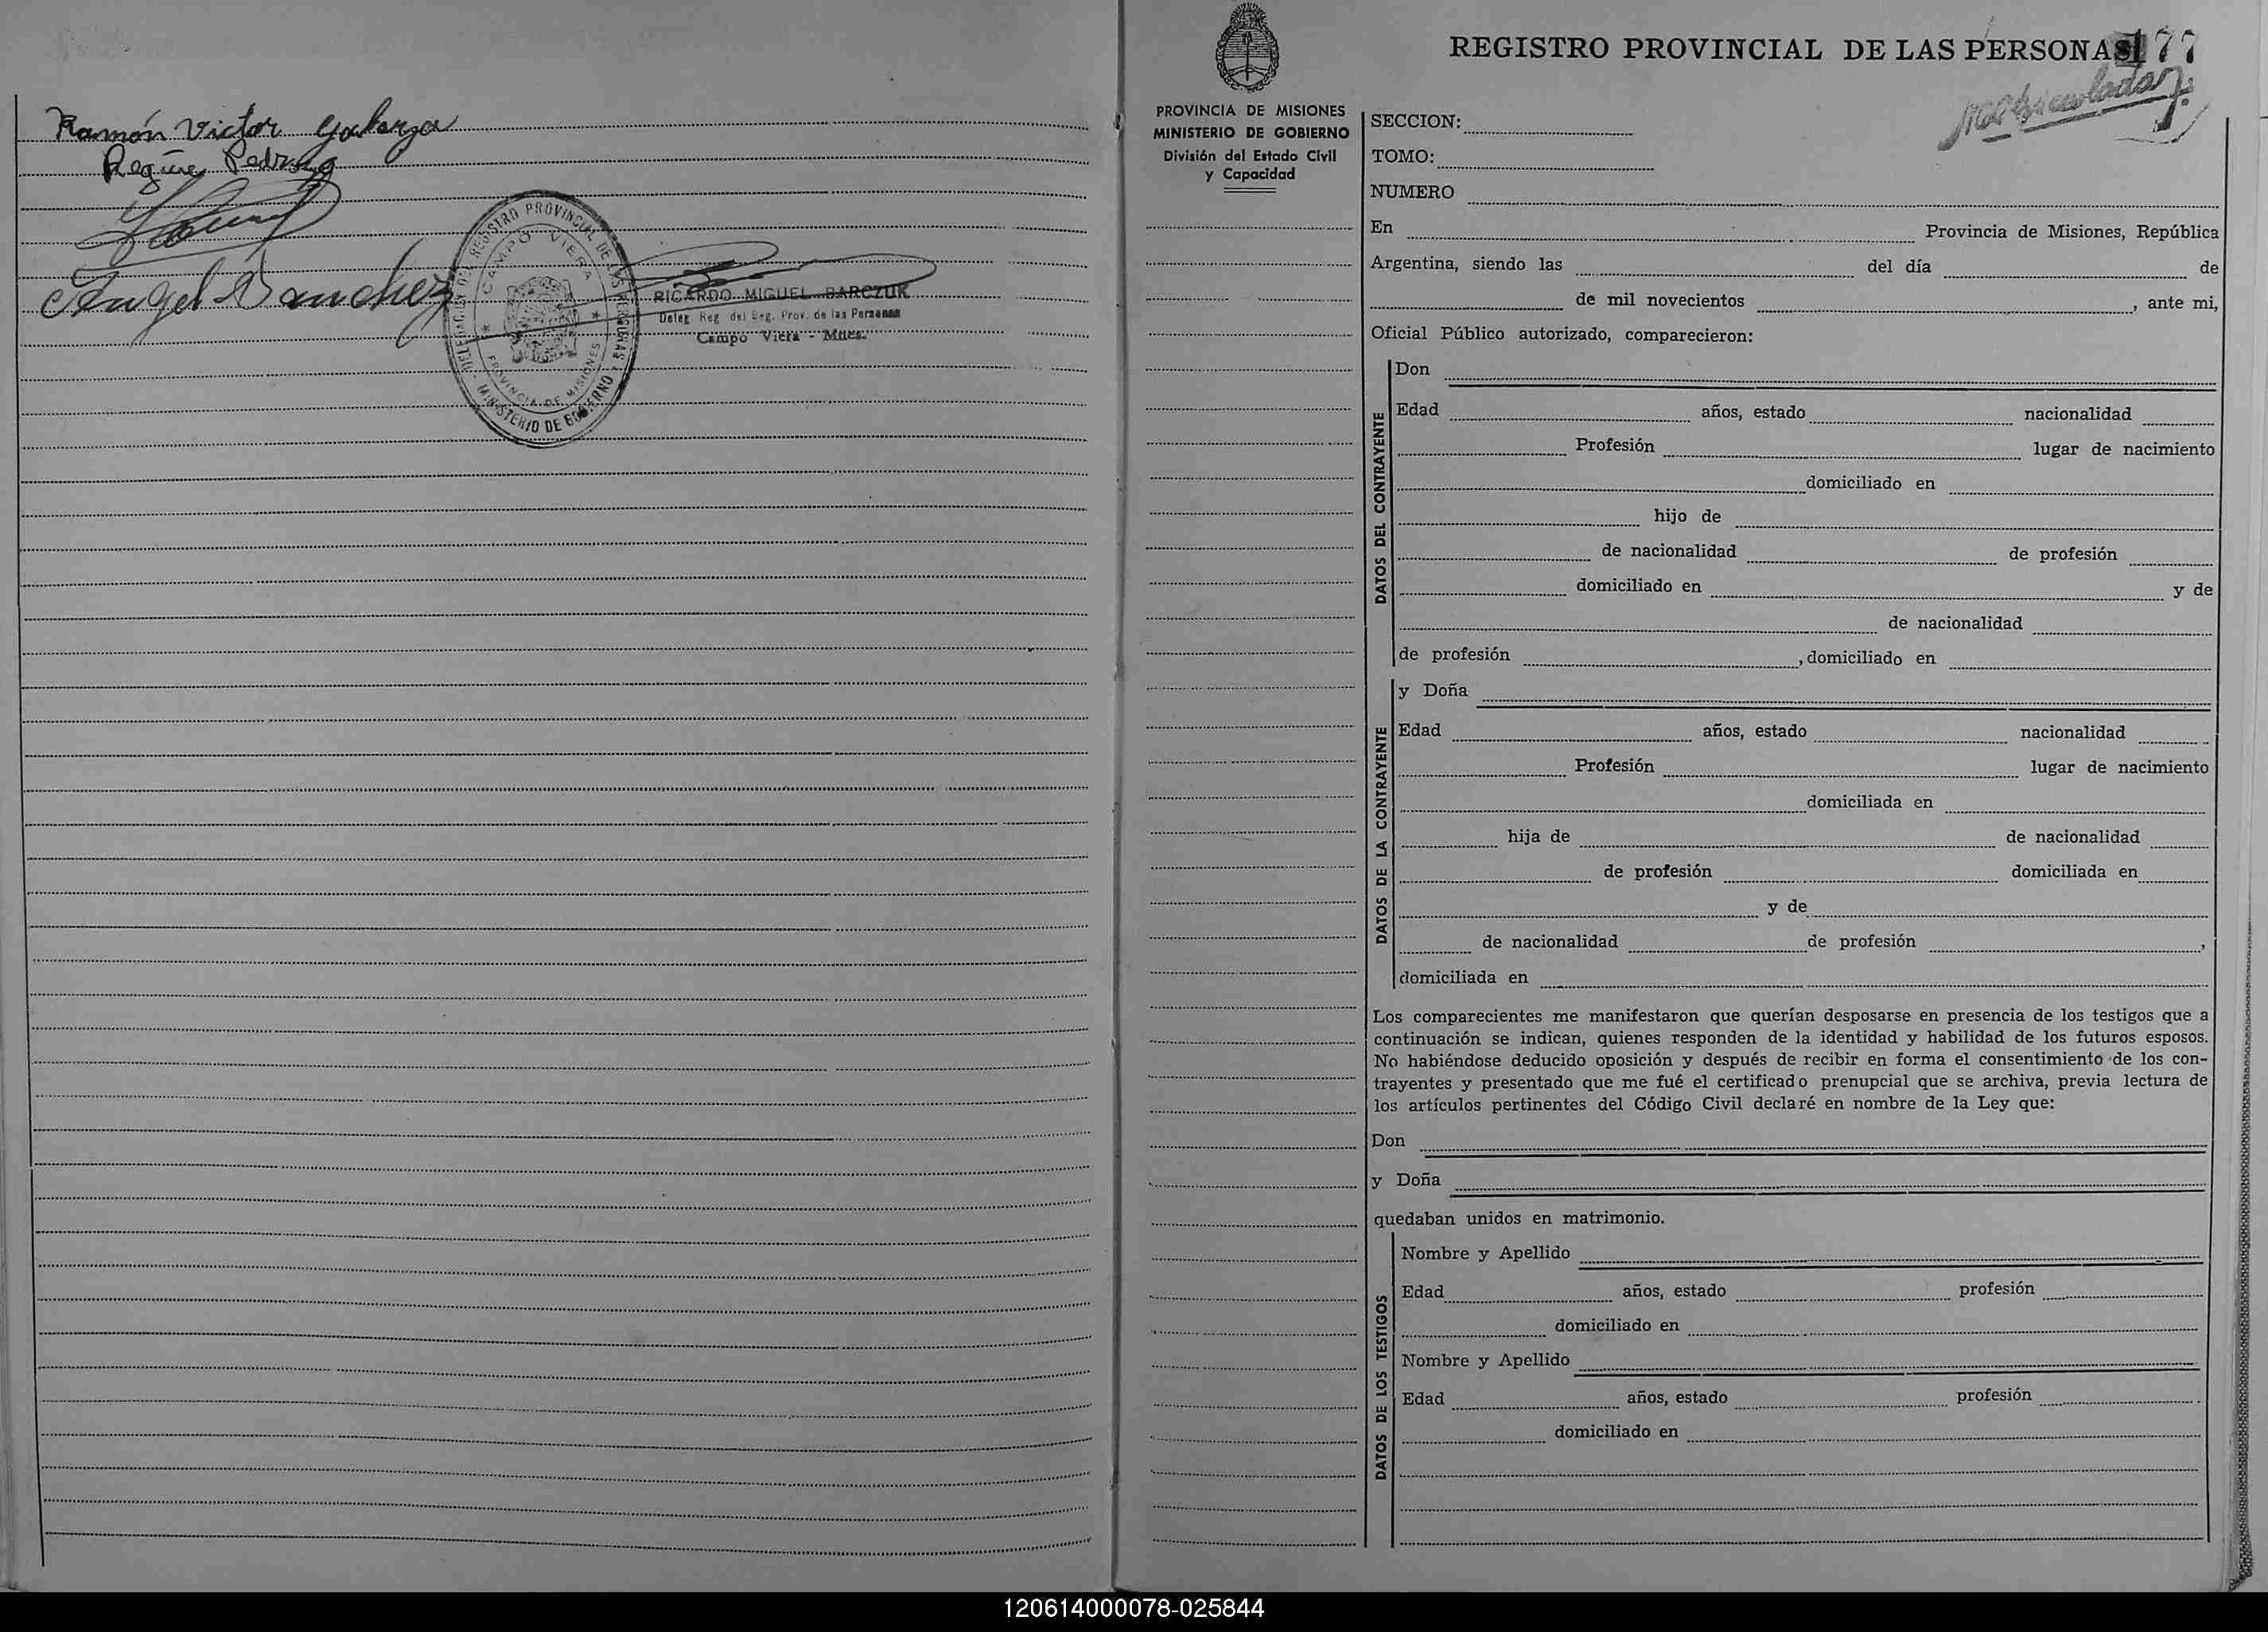 Ramón Victor Galarza
Regina Pedrozo
Angel Sanchez
DELEGACION DEL REGISTRO PROVINCIAL DE LAS PERSONAS
CAMPO VIERA
PROVINCIA DE MISIONES
MINISTERIO DE GOBIERNO
RICARDO MIGUEL BARCZUK
Deleg. Reg. del Reg. Prov. de las Personas
Campo Viera - Mnes.
PROVINCIA DE MISIONES
MINISTERIO DE GOBIERNO
División del Estado Civil
y Capacidad
REGISTRO PROVINCIAL DE LAS PERSONAS 177
SECCION:
TOMO:
NUMERO
En Provincia de Misiones, República
Argentina, siendo las del día de
de mil novecientos , ante mi,
Oficial Público autorizado, comparecieron:
DATOS DEL CONTRAYENTE
Don
Edad años, estado nacionalidad
Profesión lugar de nacimiento
domiciliado en
hijo de
de nacionalidad de profesión
domiciliado en y de
de nacionalidad
de profesión , domiciliado en
DATOS DE LA CONTRAYENTE
y Doña
Edad años, estado nacionalidad
Profesión lugar de nacimiento
domiciliada en
hija de de nacionalidad
de profesión domiciliada en
y de
de nacionalidad de profesión ,
domiciliada en
Los comparecientes me manifestaron que querían desposarse en presencia de los testigos que a
continuación se indican, quienes responden de la identidad y habilidad de los futuros esposos.
No habiéndose deducido oposición y después de recibir en forma el consentimiento de los con-
trayentes y presentado que me fué el certificado prenupcial que se archiva, previa lectura de
los artículos pertinentes del Código Civil declaré en nombre de la Ley que:
Don
y Doña
quedaban unidos en matrimonio.
DATOS DE LOS TESTIGOS
Nombre y Apellido
Edad años, estado profesión
domiciliado en
Nombre y Apellido
Edad años, estado profesión
domiciliado en
120614000078-025844